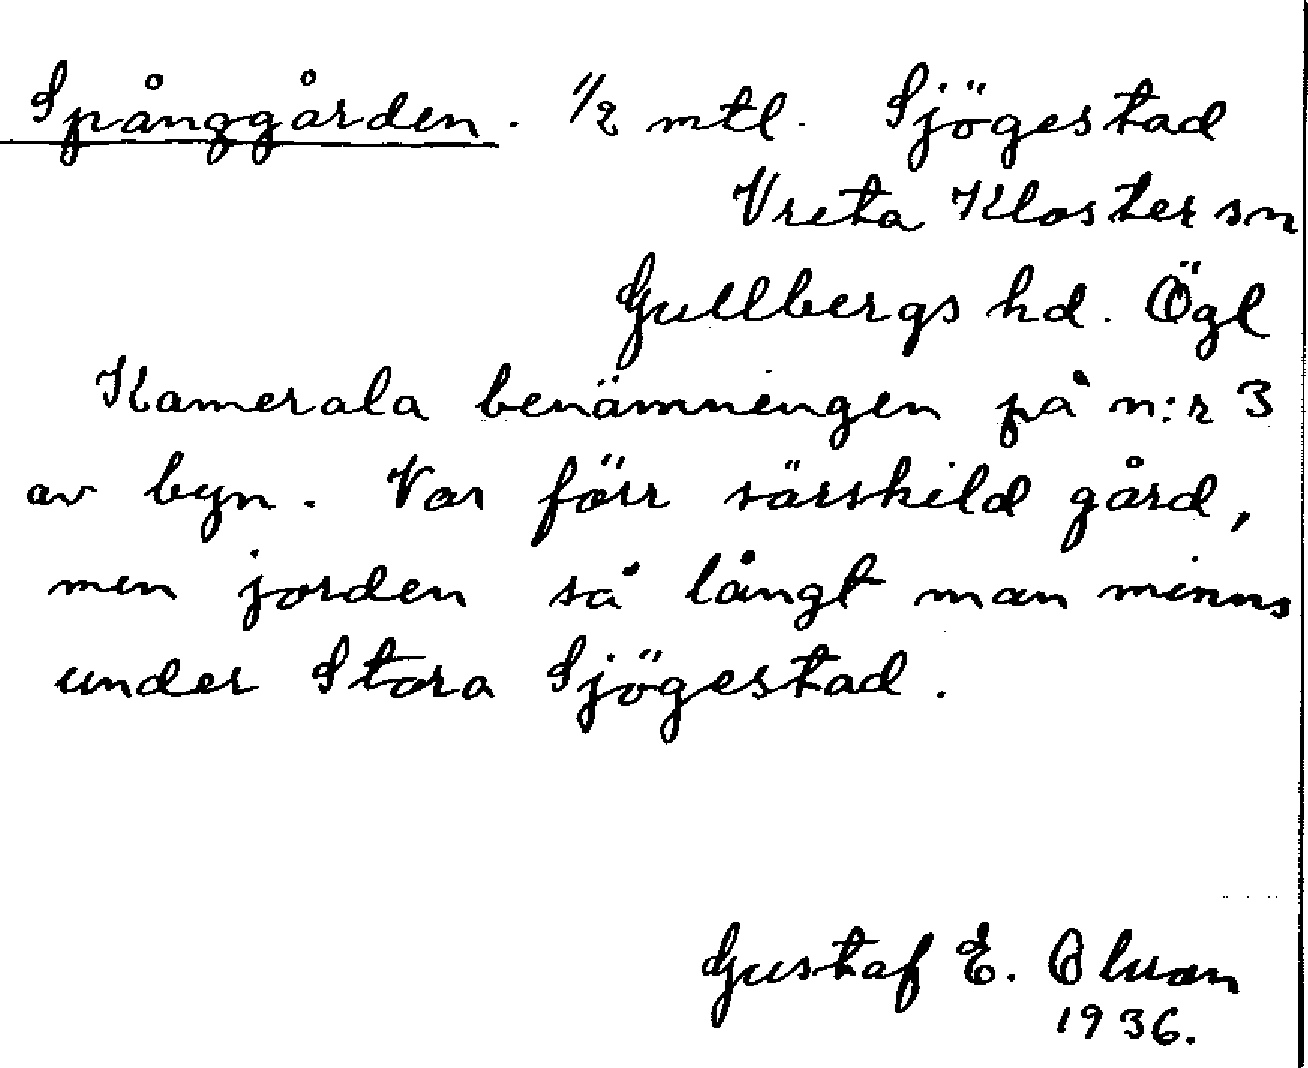 Spånggården. 1/2 mtl. Sjögestad
Vreta Kloster sn
Gullbergs hd. Ögl
Kamerala benämningen på n:r 3
av byn. Var förr särskild gård,
men jorden så långt man minns
under Stora Sjögestad.
Gustaf E.
1936.